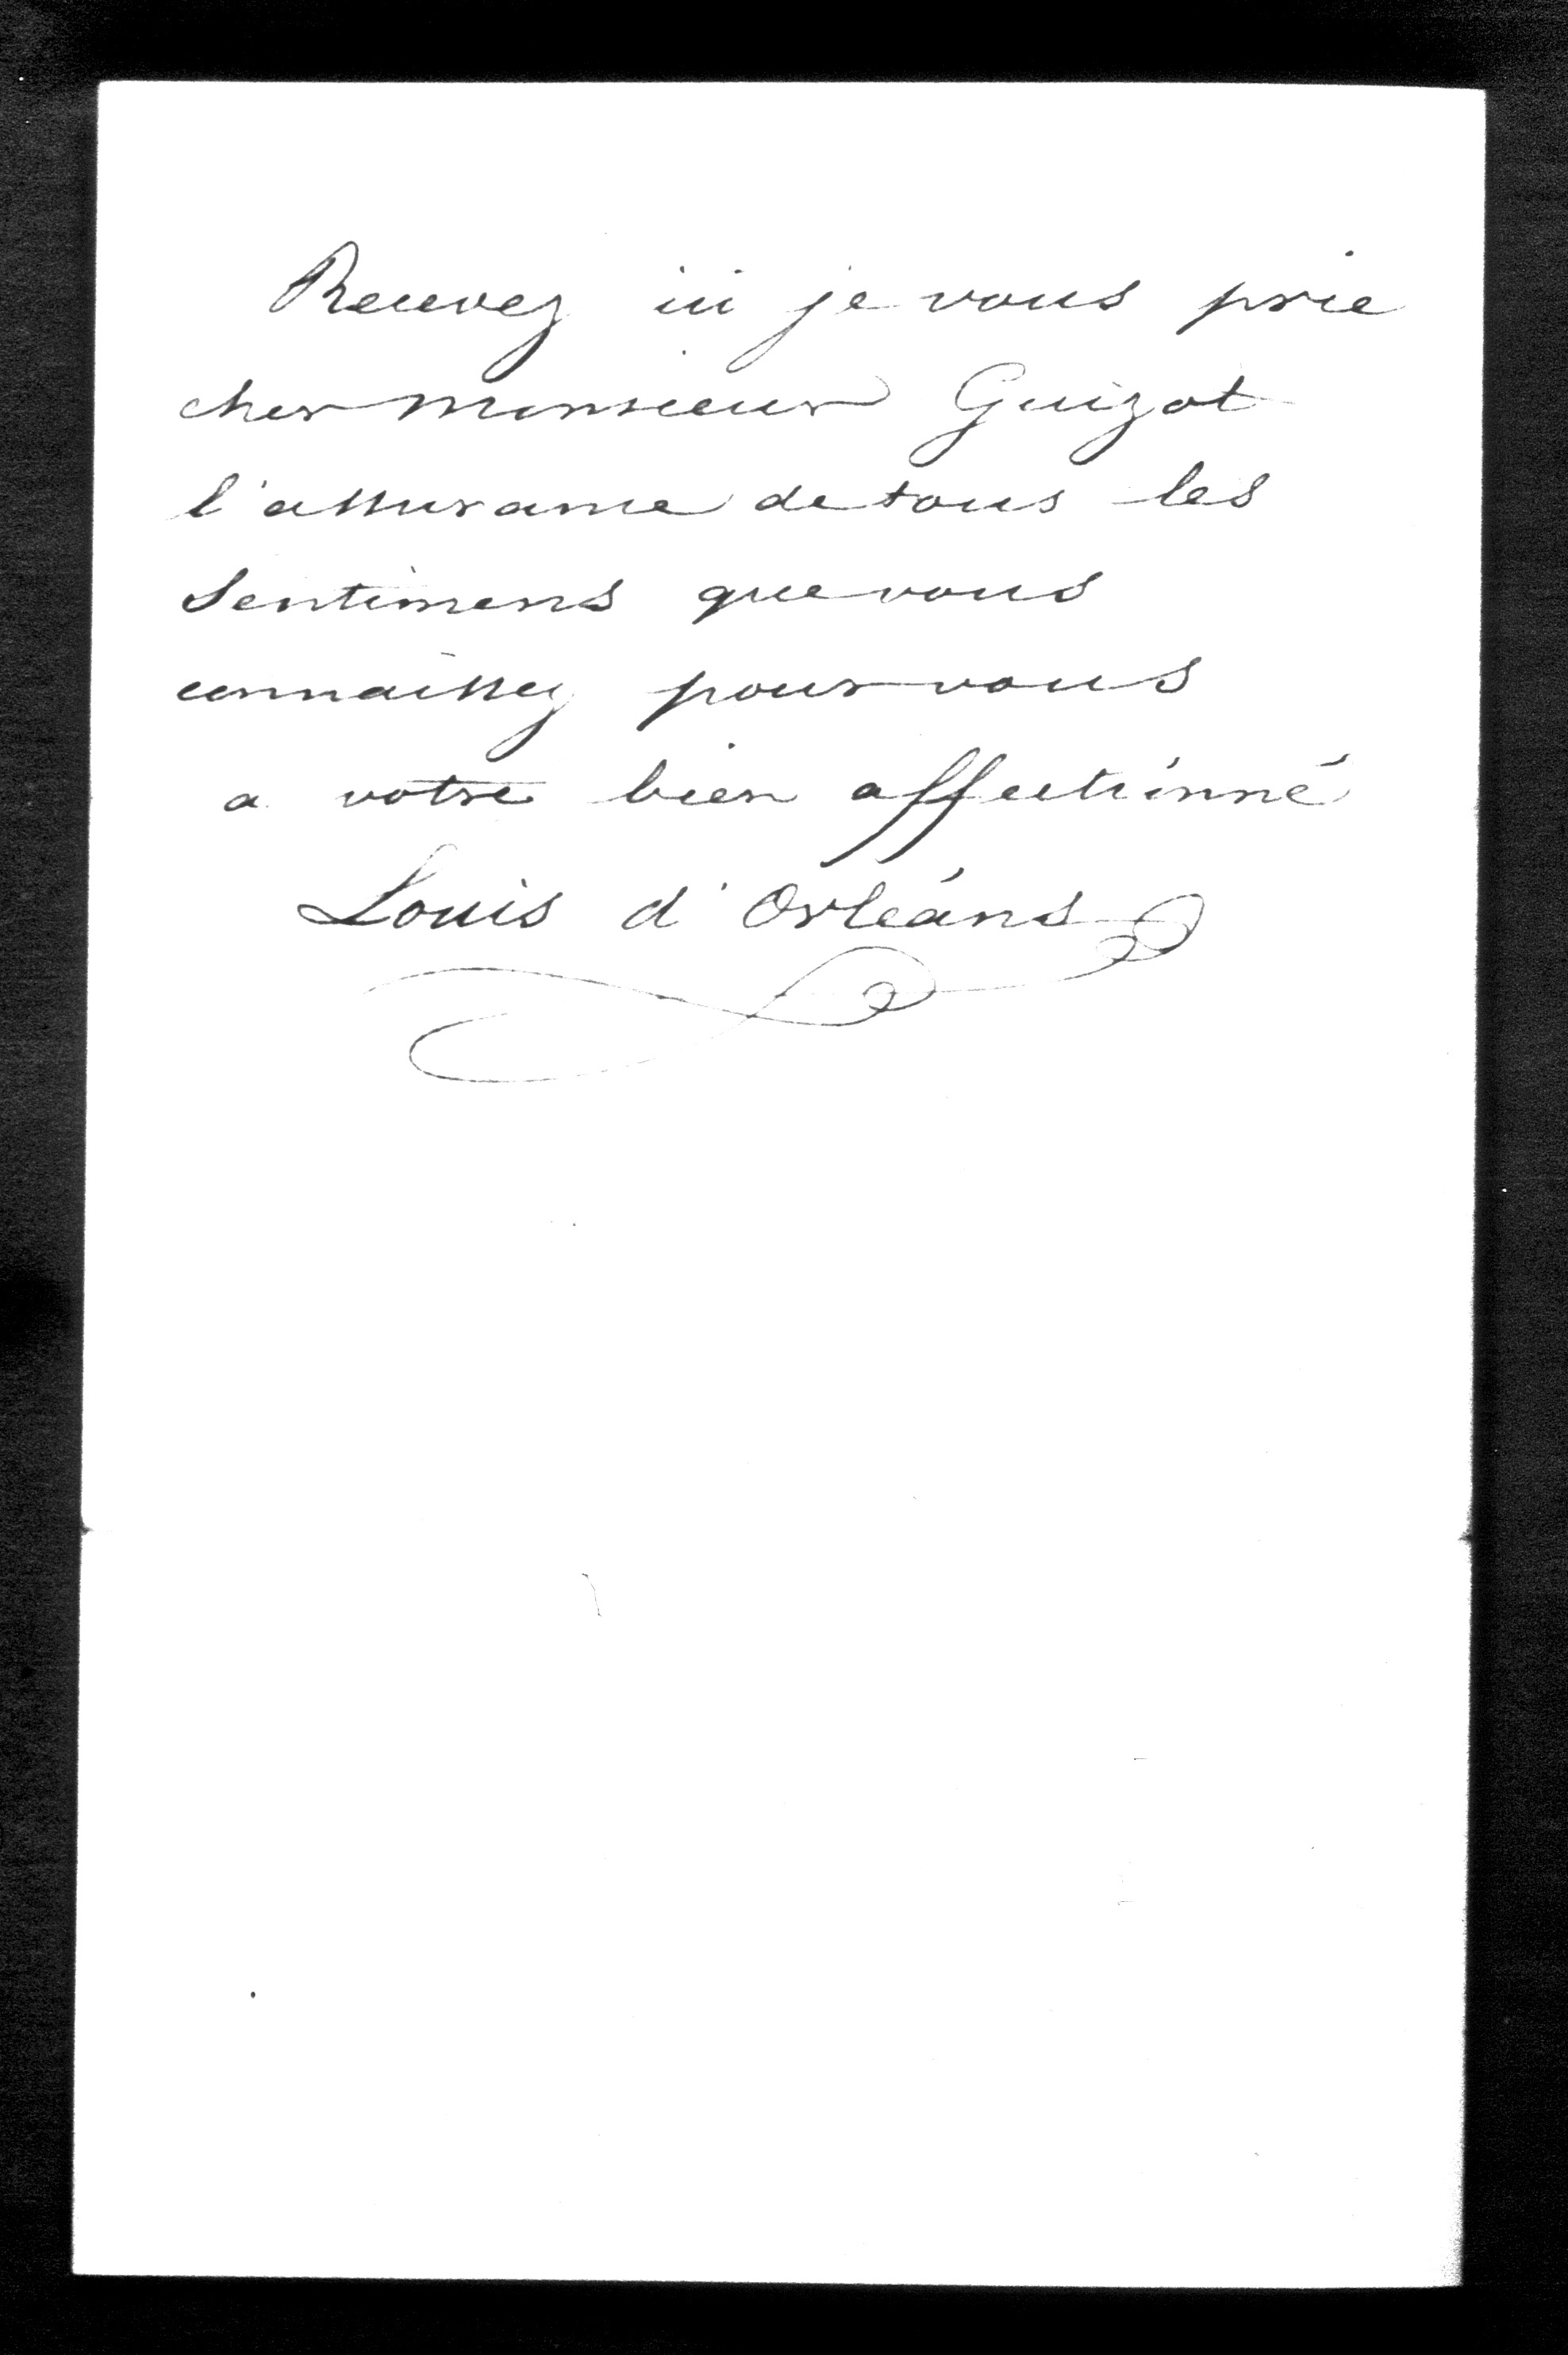 Recevez ici je vous prie
cher Monsieur Guizot
l'assurance de tous les
Sentimens que vous
connaissez pour vous
a votre bien affectionné
Louis d'Orléans